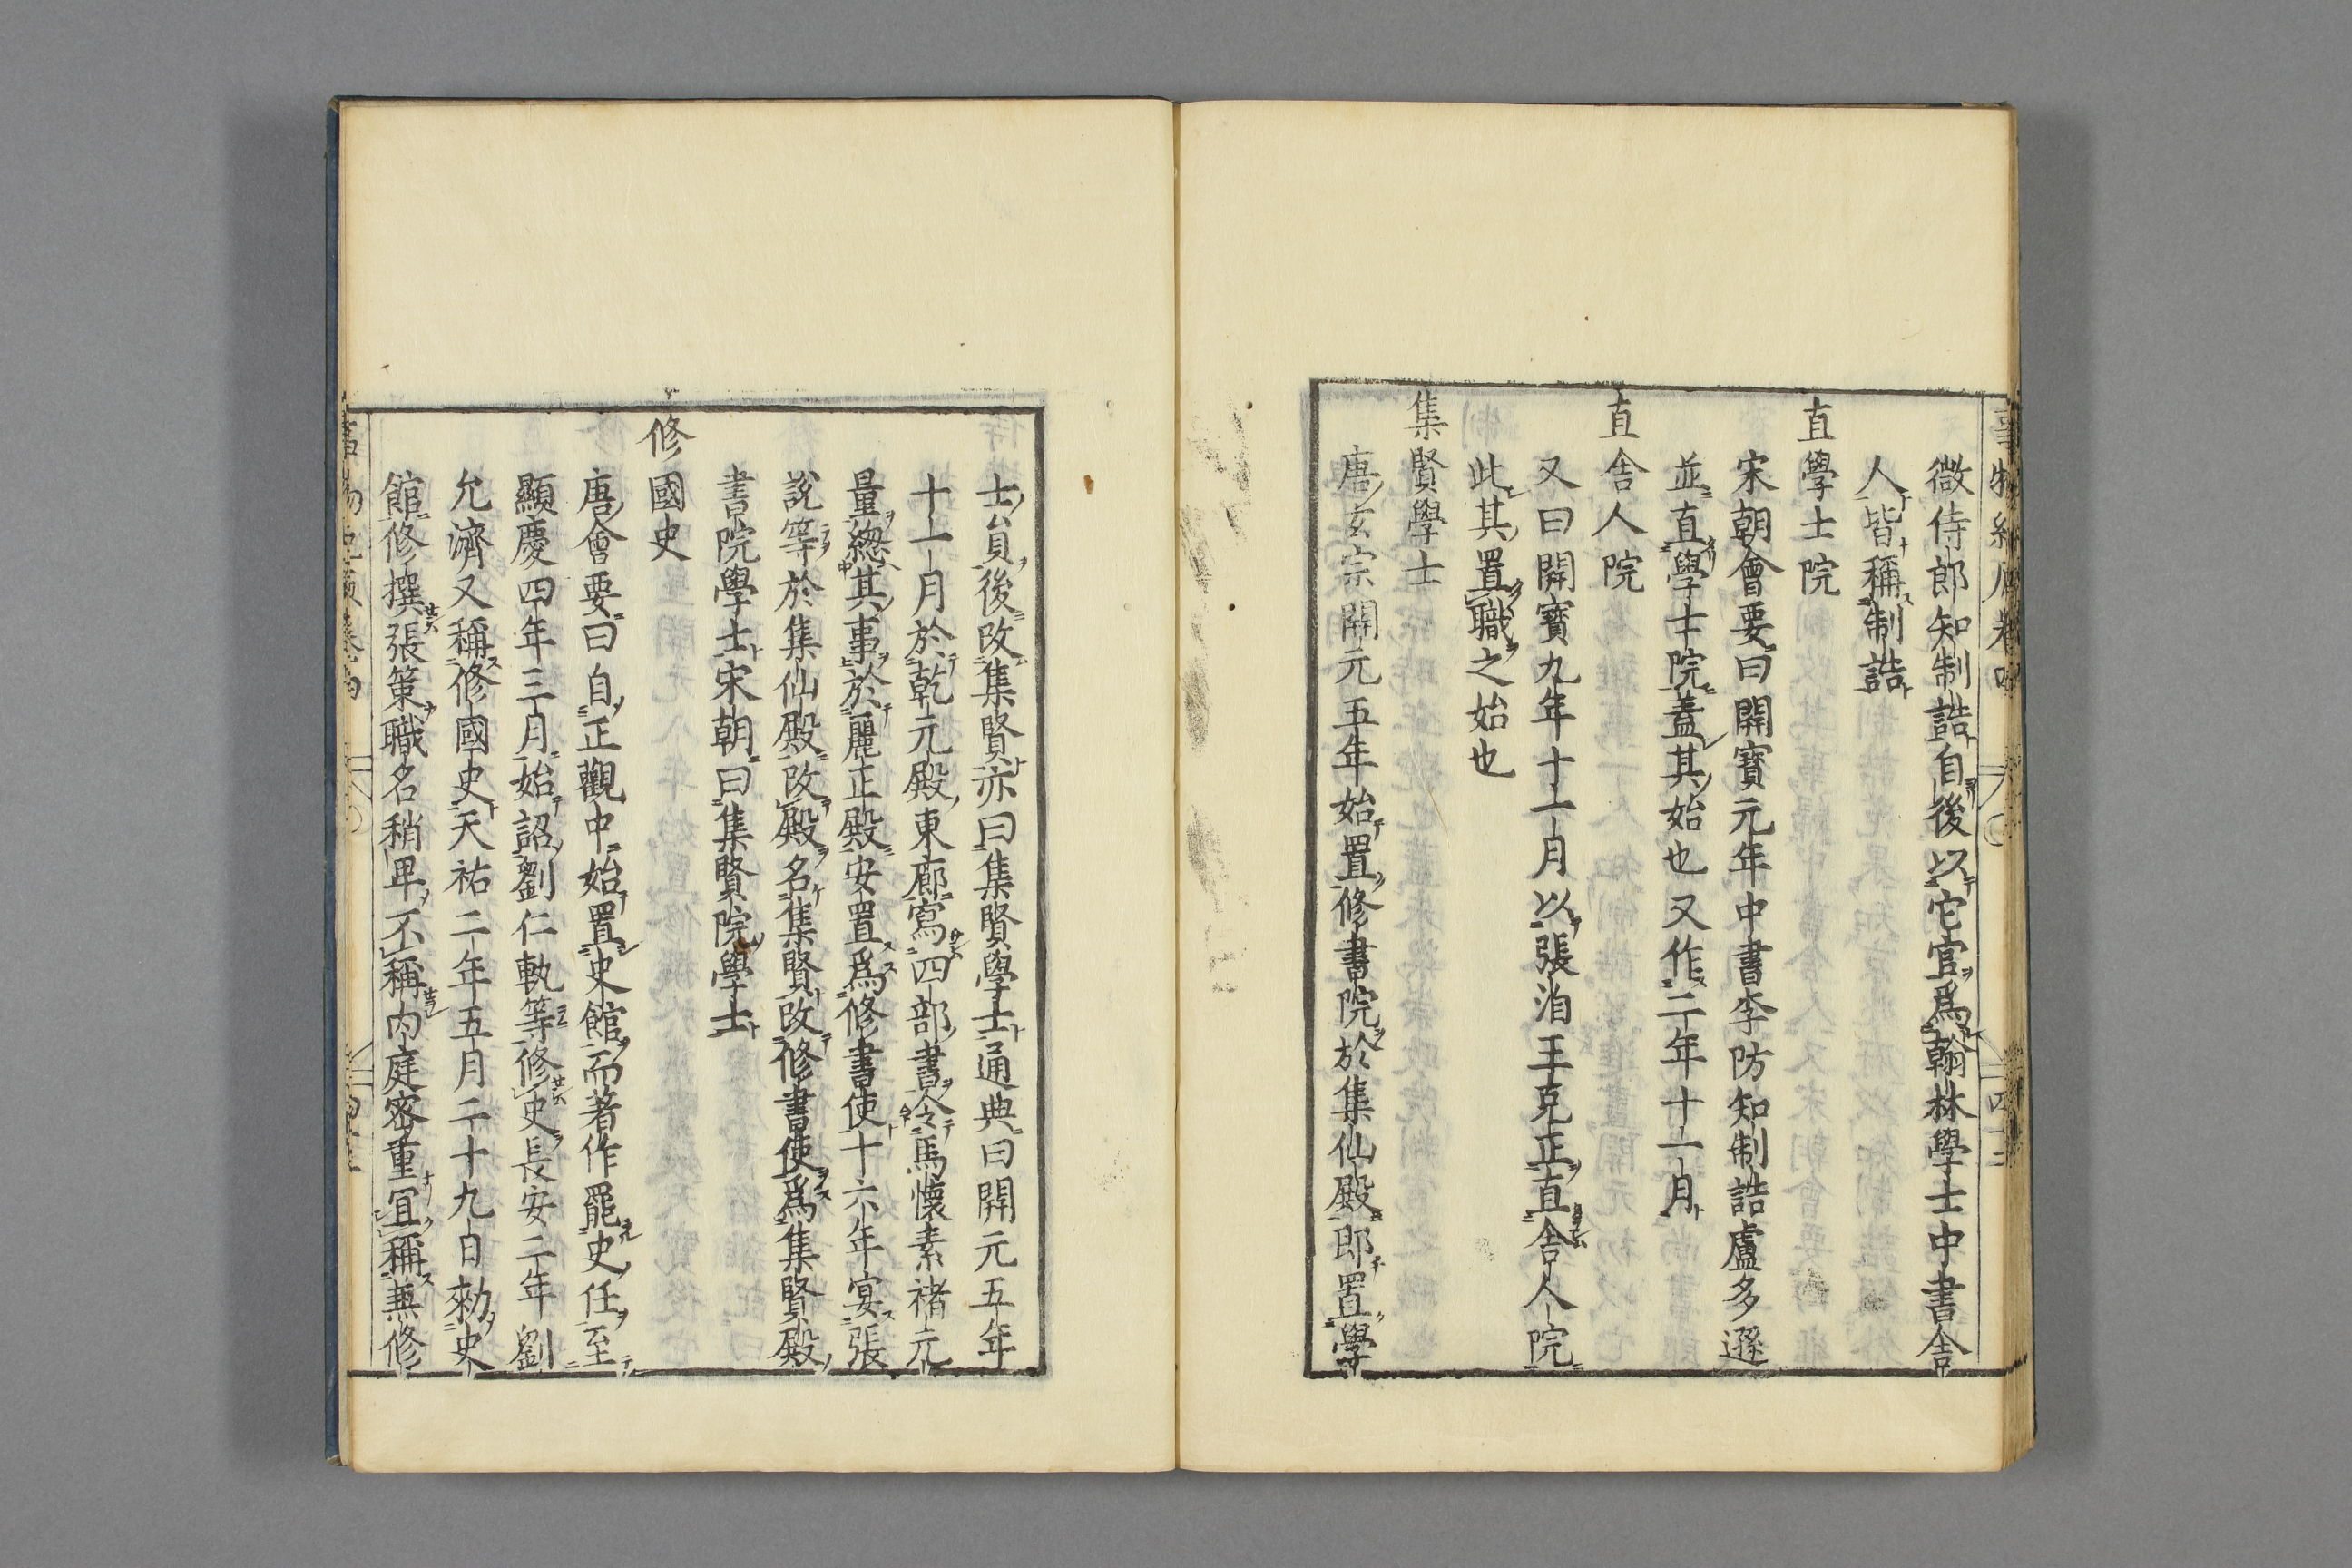 徴侍郎知制誥自後以它官爲翰林學士中書舎
人皆稱制誥
直學士院
宋朝會要曰開寳元年中書李防知制誥盧多遜
並直學士院蓋其始也又作二年十一月
直舎人院
又曰開寳九年十一月以張洎王克正直舎人院
此其置職之始也
集賢學士
唐玄宗開元五年始置修書院於集仙殿郎置學
士員後改集賢亦曰集賢學士通典曰開元五年
十一月於乾元殿東廊寫四部書令馬懷素褚元
量總其事於麗正殿安置爲修書使十六年宴張
説等於集仙殿改殿名集賢改修書使爲集賢殿
書院學士宋朝曰集賢院學士
修國史
唐會要曰自正觀中始置史館而著作罷史任至
顯慶四年三月始詔劉仁軌等修史長安二年劉
允濟又稱修國史天祐二年五月二十九日勑史
館修撰張策職名稍卑不稱内庭密重宜稱兼修